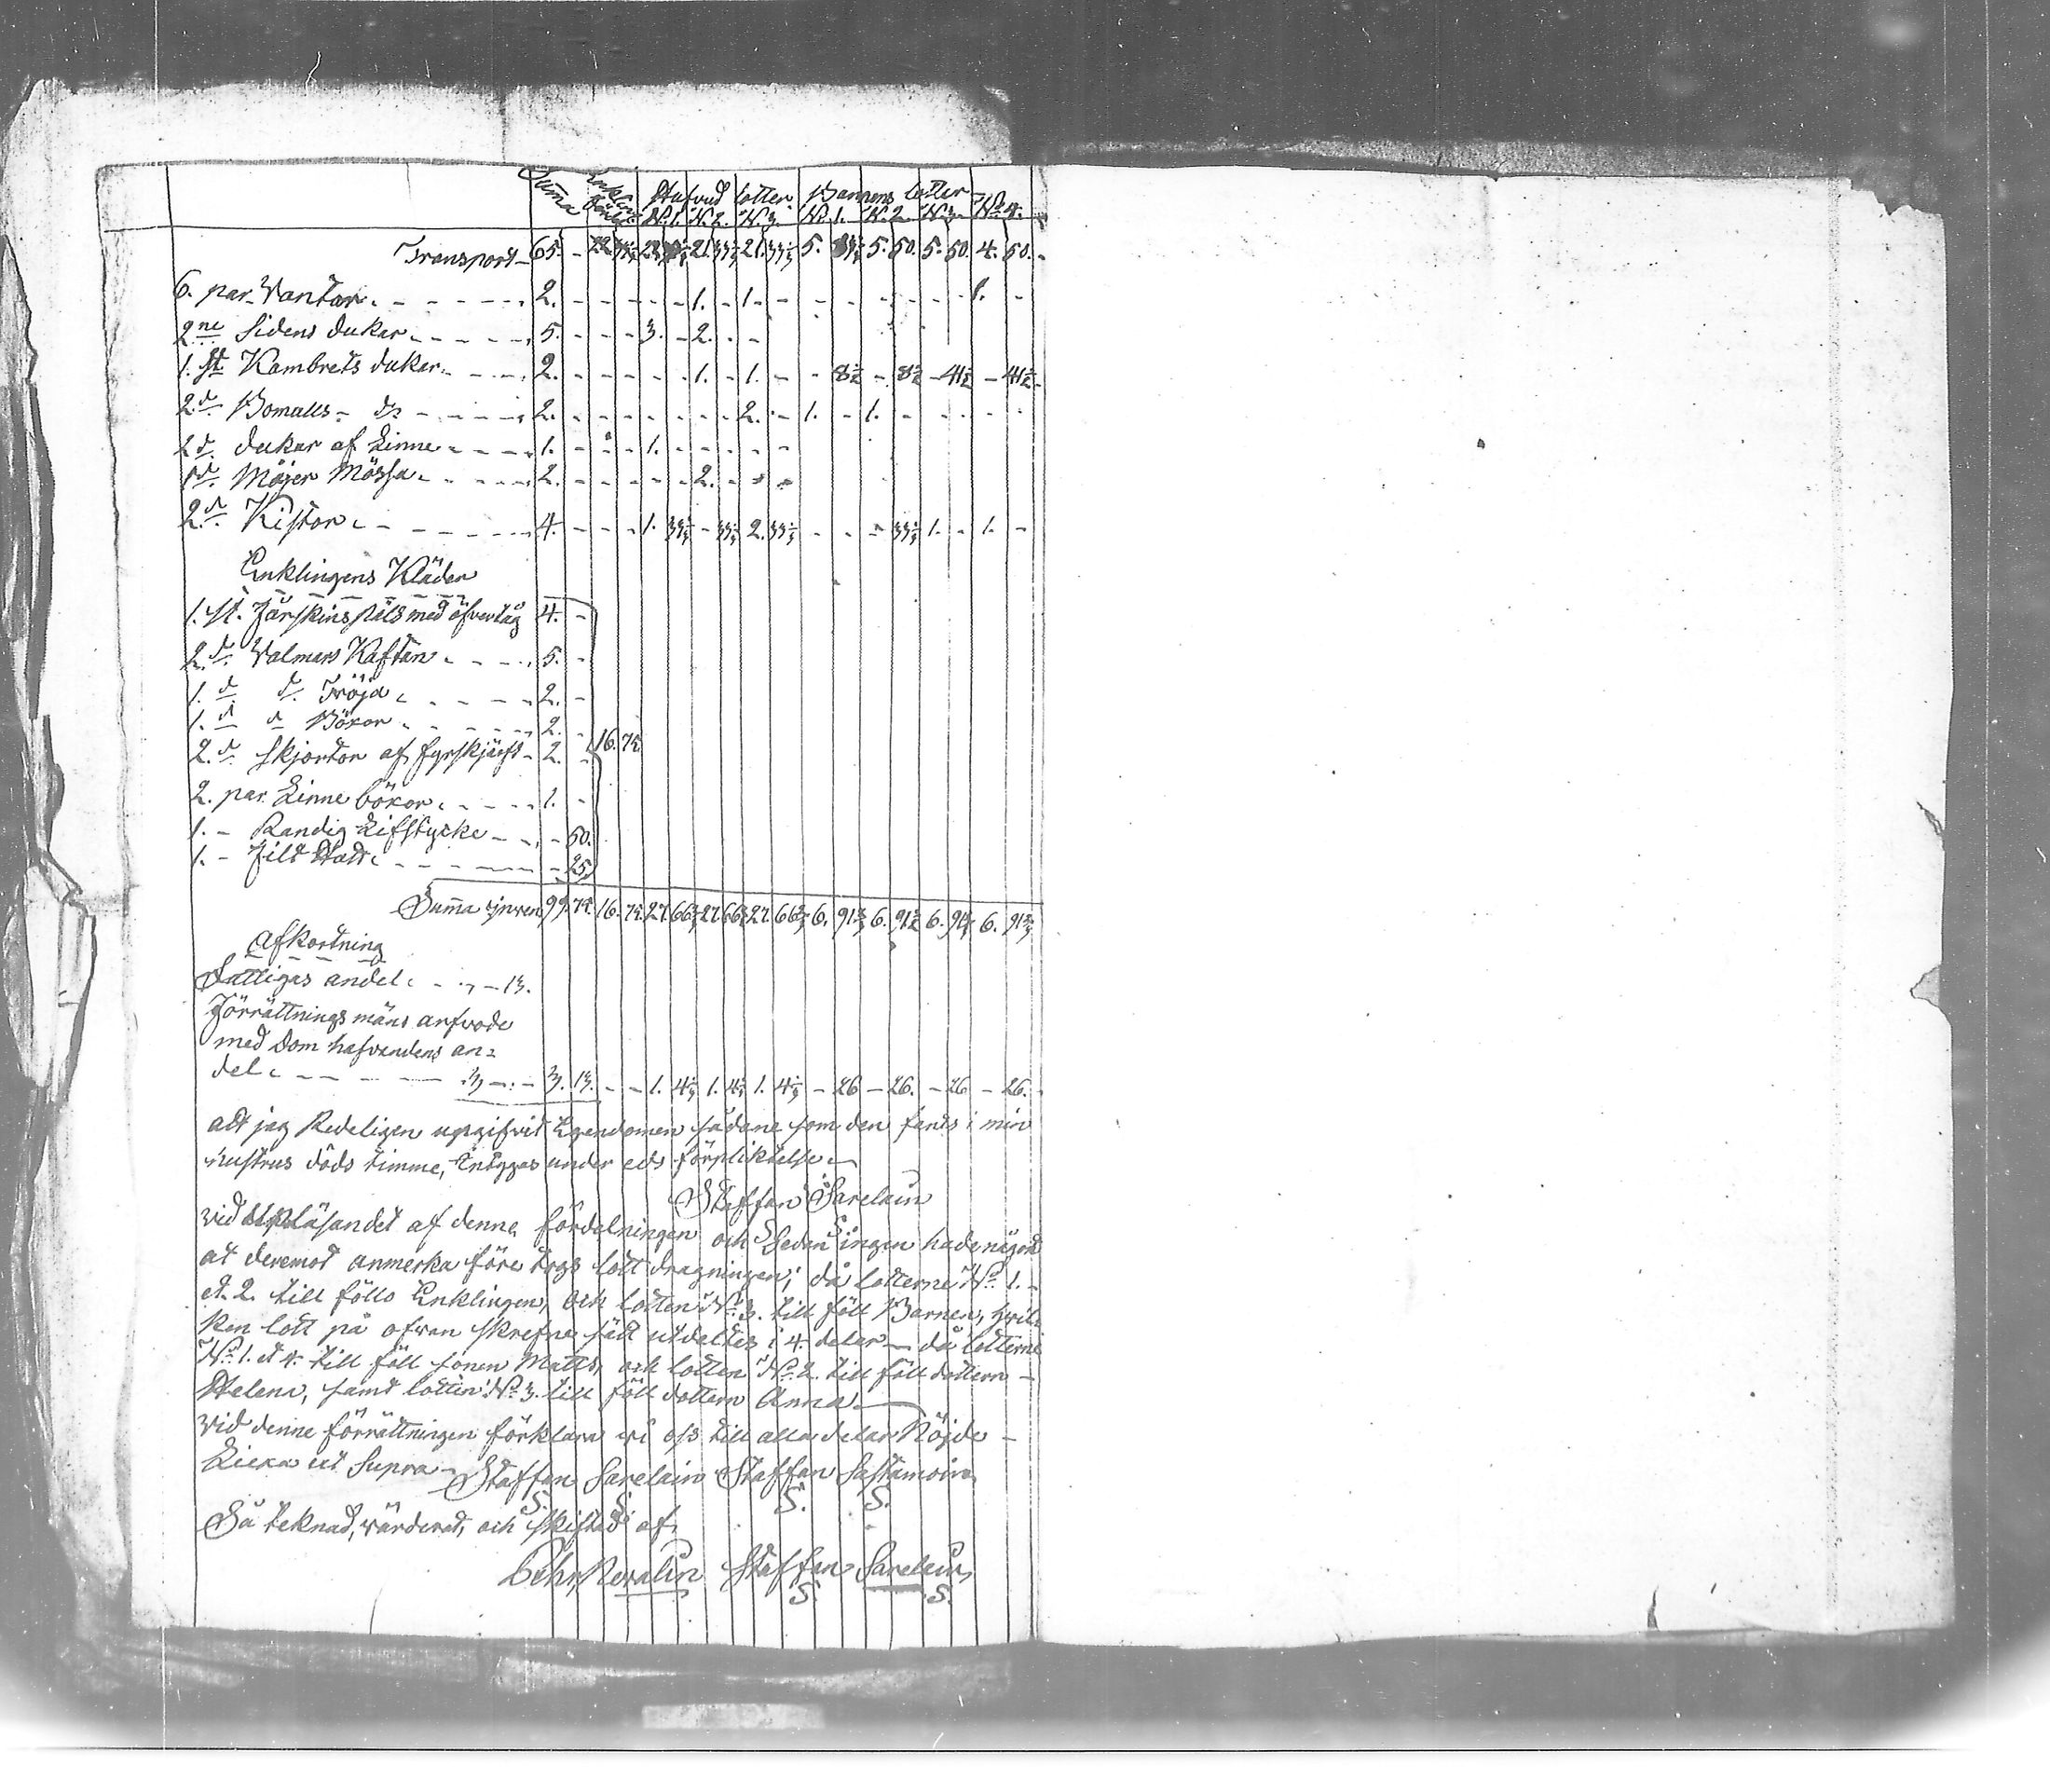 Summa Hufvud lotter. Barnens lotter
N:1. N.2. N.3. N. 1. N. 2. N.3. N:o 4.
Transport 65. - 21.33⅓ 21.33⅓ 5. 5. 50. 5. 50. 4. 50.
6. par Vantar 2. - 1. - 1. - 1. -
2:ne Sidens dukar 5. - 3. - 2.
1. st Kambrets dukar 2. - 1. - 1. - 8½ - 8½ - 41½ - 41½
2 d:o Bomulls d:o 2. - 2. - 1. - 1.
2 d. dukar af Linne 1. - 1.
1 d:o Möjer Mössa 2. - 2.
2 d:o Kistor 4. - 1. 33⅓ - 33⅓ 2. 33⅓ - 33⅓ 1. - 1. -
Enklingens Kläder
1. st. Fårskins päls med öfvertåg 4. -
2 d:o Valmars Kaftan 5. -
1. d d:o Tröja 2. -
1. d d Böxor 2. -
2. d. Skjortor af fyrskjäft 2. - 16. 75
2. par Linne böxor 1. -
1. - Randig Lifstycke - 50.
1. - Filt Hatt - 25.
Summa 99. 75. 16. 75. 27. 66⅔ 27. 66⅔ 27. 66⅔ 6. 91⅔ 6. 91⅔ 6. 91⅔ 6. 91⅔
Afkortning
Fattigas andel - 13.
Förrättnings mäns arfvode
med Dom hafvendens an=
del 3 - 3. 13. - - 1. 4⅓ 1. 4⅓ 1. 4⅓ - 26 - 26. - 26 - 26.
att jag Redeligen uppgifvit Egendomen sådane som den fants i min
hustrus döds timme, intygas under eds förpliktelse
Staffan Sarelain
S. S.
vid upläsandet af denne fördelningen och Sedan ingen hade något
at deremot anmerka före togs lott dragningen; då lotterne N:o 1.
et. 2. till föllo Enklingen, och lotten N:o 3. till föll Barnen, hvil-
ken lott på ofvan skrefne sätt utdeltes i 4. delar då lotterne
N:o 1. et 4. till föll sonen Matts, och lotten N:o 2. till föll dottern
Helena, samt lotten N:o 3. till föll dottern Anna.
vid denne förrättningen förklara vi oss till alla delar Nöjde
Liexa ut Supra Staffan Sarelain Staffan Sastamoinen
S. S. S. S.
Så teknad, värderad, och skiftad af
Staffan Sarelain
S. S.